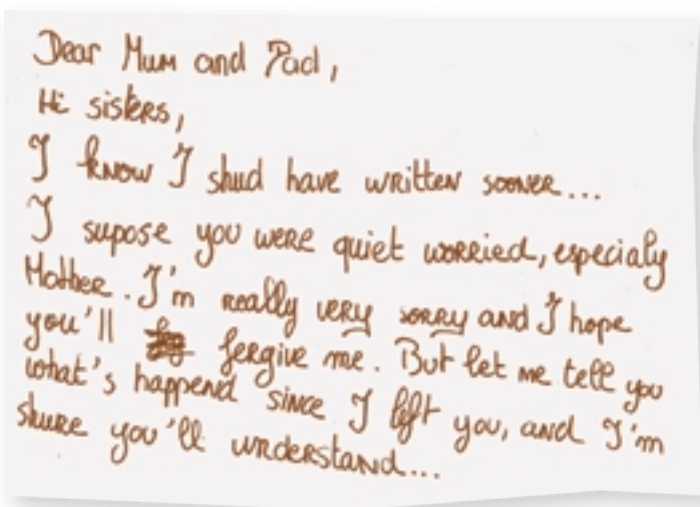 Dear Mum and Dad,
Hi sisters,
I know I shud have written sooner...
I supose you were quiet worried, especialy
Mother. I'm really very sorry and I hope
you'll fergive me. But let me tell you
what's happend since I left you, and I'm
shure you'll understand...